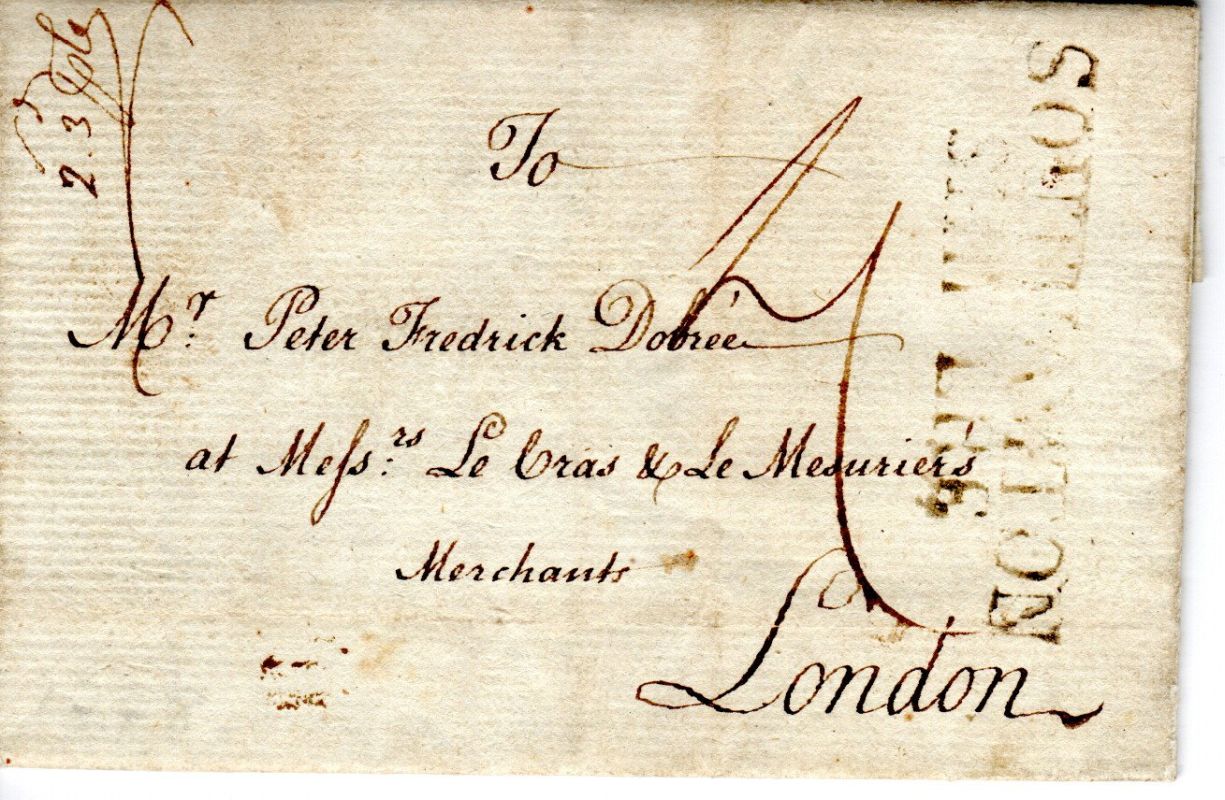 To
Mr. Peter Fredrick Dobrée
at Messrs. Le Cras & Le Mesuriers
Merchants
London
4
2.3